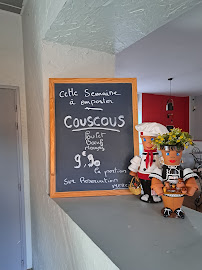 Cette Semaine
à emporter
COUSCOUS
Poulet
Boeuf
Merguez
9,90
la portion
Sur Réservation